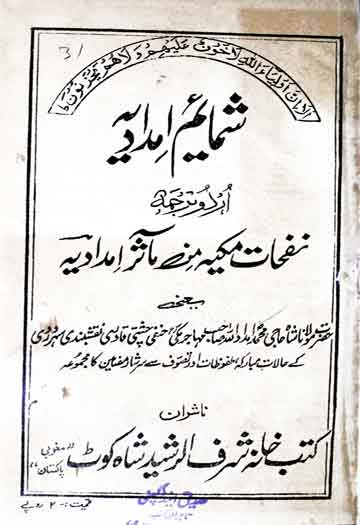 الا ان اولیاء اللہ لا خوف علیہم ولا ہم یحزنون ط
شمایٔم امدادیہ
اُردو ترجمہ
نفحات مکیہ من مآثر امدادیہ
یعنی
حضرت مولانا شاہ حاجی محمد امداد اللہ صاحب مہاجر مکی حنفی چشتی قادری نقشبندی سہروردی
کے حالات مبارکہ ملفوظات اور تصوف سے سرشار مضامین کا مجموعہ
ناشران
کتب خانہ شرف الرشید شاہ کوٹ
"مغربی پاکستان"
قیمت :- ۲ روپے